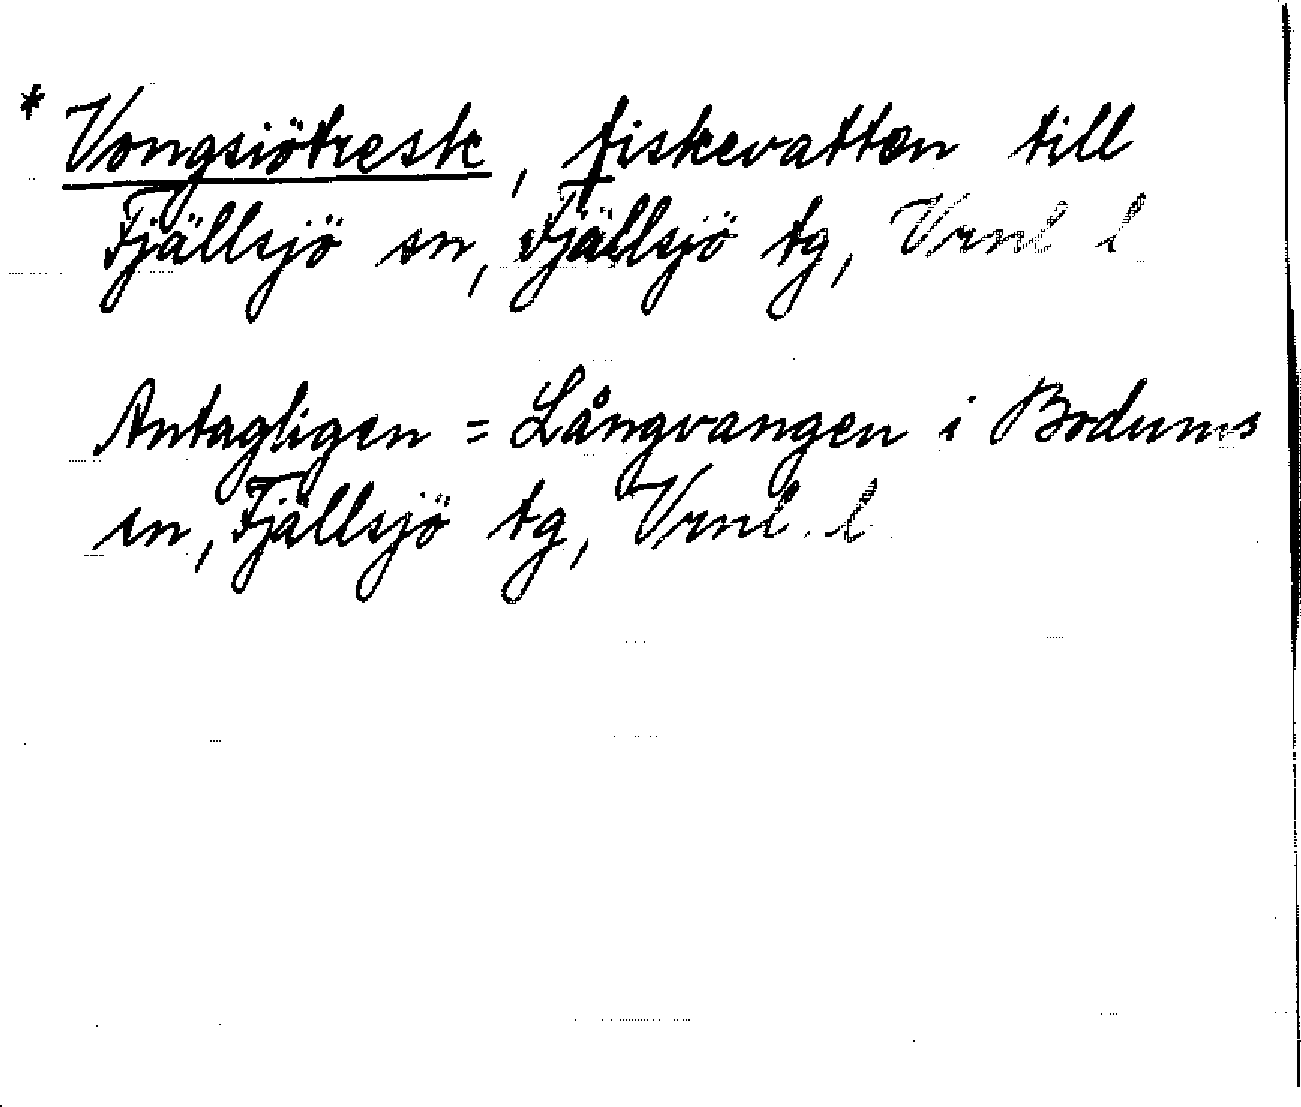 * Vongsiötresk, fiskevatten till
Fjällsjö sn, Fjällsjö tg, Vrnl l
Antagligen = Långvangen i Bodums
sn, Fjällsjö tg, Vrnl. l